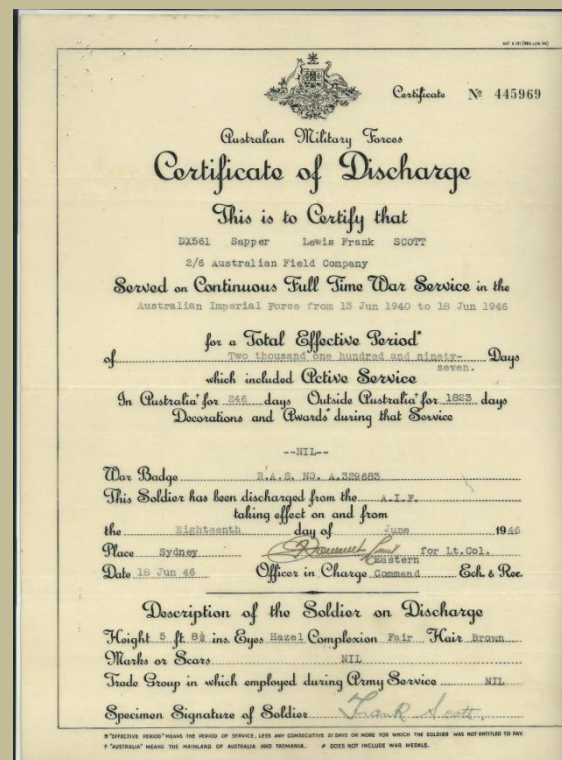 AAF A 101 (REG. JAN. 46)
Certificate № 445969
Australian Military Forces
Certificate of Discharge
This is to Certify that
DX561 Sapper Lewis Frank SCOTT
2/6 Australian Field Company
Served on Continuous Full Time War Service in the
Australian Imperial Force from 13 Jun 1940 to 18 Jun 1946
for a Total Effective Period*
of Two thousand one hundred and ninety- Days
seven.
which included Active Service
In Australia† for 246 days Outside Australia† for 1823 days
Decorations and Awards# during that Service
--NIL--
War Badge R.A.S. NO. A.329683
This Soldier has been discharged from the A.I.F.
taking effect on and from
the Eighteenth day of June 1946
Place Sydney for Lt.Col.
Eastern
Date 18 Jun 46 Officer in Charge Command Ech. & Rec.
Description of the Soldier on Discharge
Height 5 ft. 8½ ins. Eyes Hazel Complexion Fair Hair Brown
Marks or Scars NIL
Trade Group in which employed during Army Service NIL
Specimen Signature of Soldier Frank Scott.
* "EFFECTIVE PERIOD" MEANS THE PERIOD OF SERVICE, LESS ANY CONSECUTIVE 21 DAYS OR MORE FOR WHICH THE SOLDIER WAS NOT ENTITLED TO PAY.
† "AUSTRALIA" MEANS THE MAINLAND OF AUSTRALIA AND TASMANIA. # DOES NOT INCLUDE WAR MEDALS.